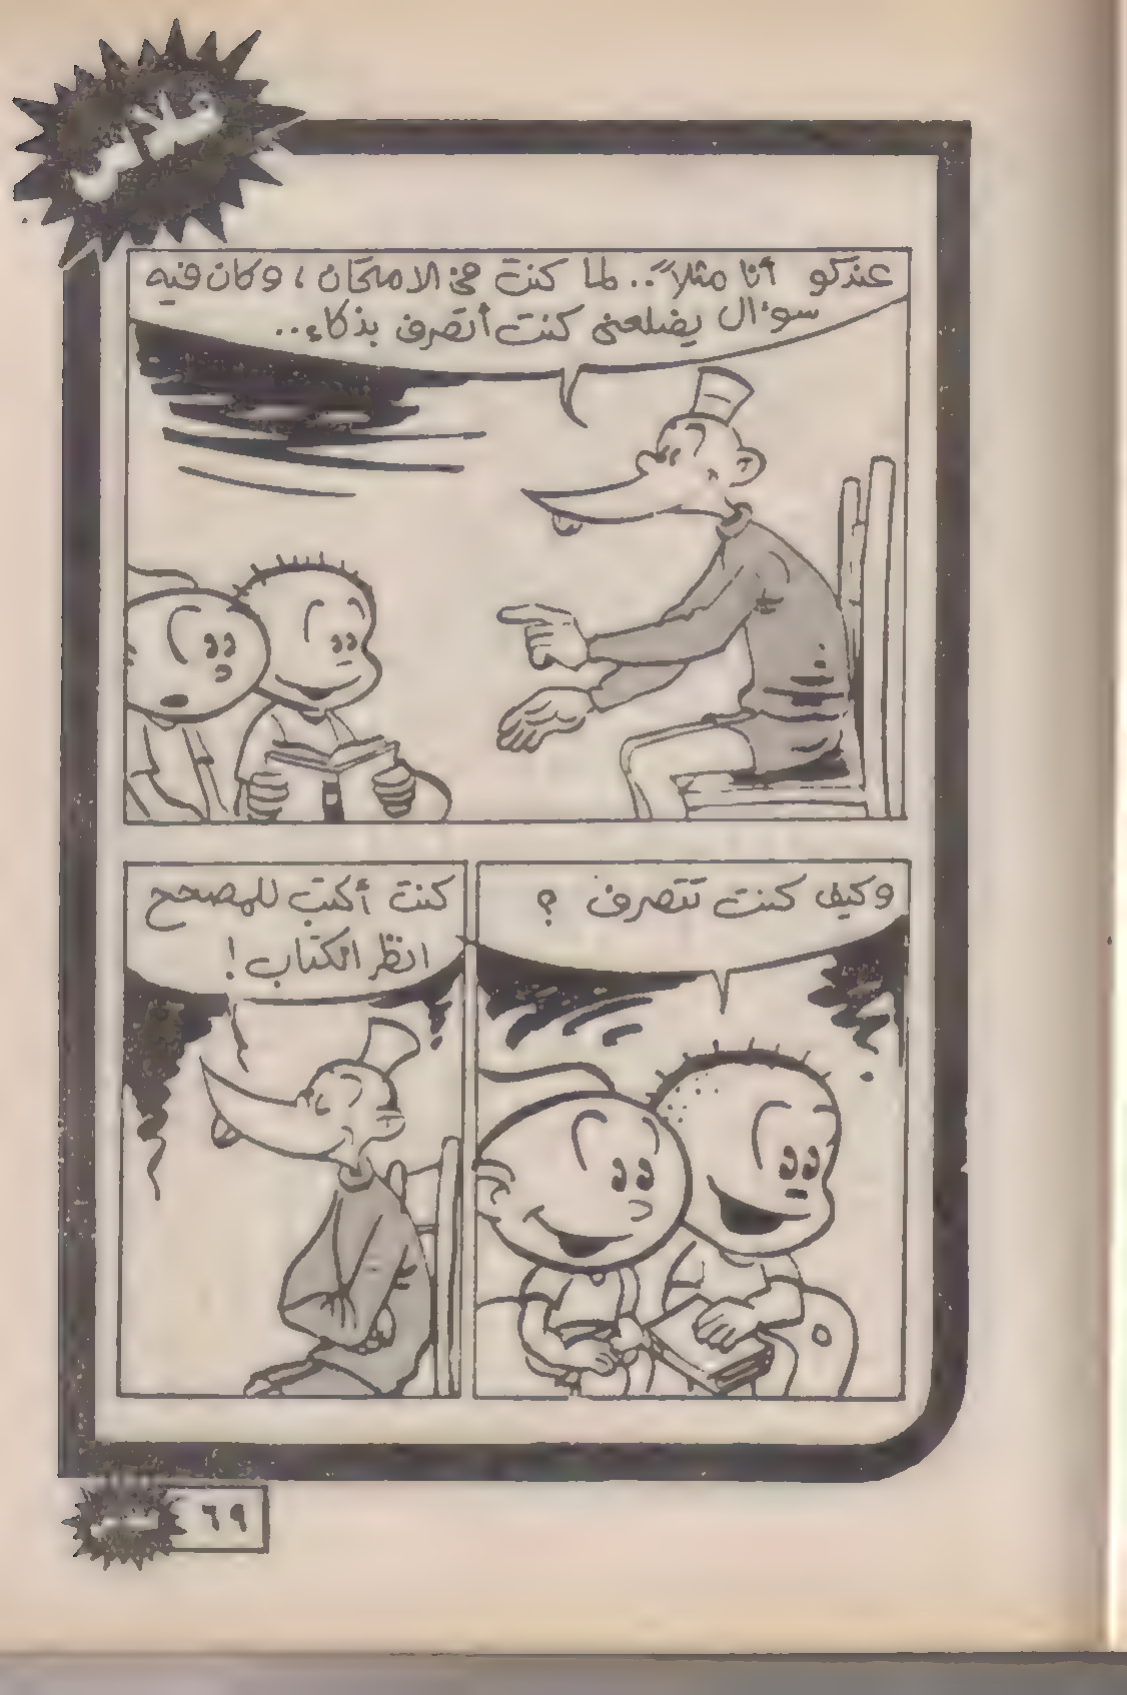 عندكو أنا مثلاً.. لما كنت في الامتحان ، وكان فيه
سؤال يضلعني كنت أتصرف بذكاء..
وكيف كنت تتصرف ؟
كنت أكتب للمصحح
انظر الكتاب !
٦٩